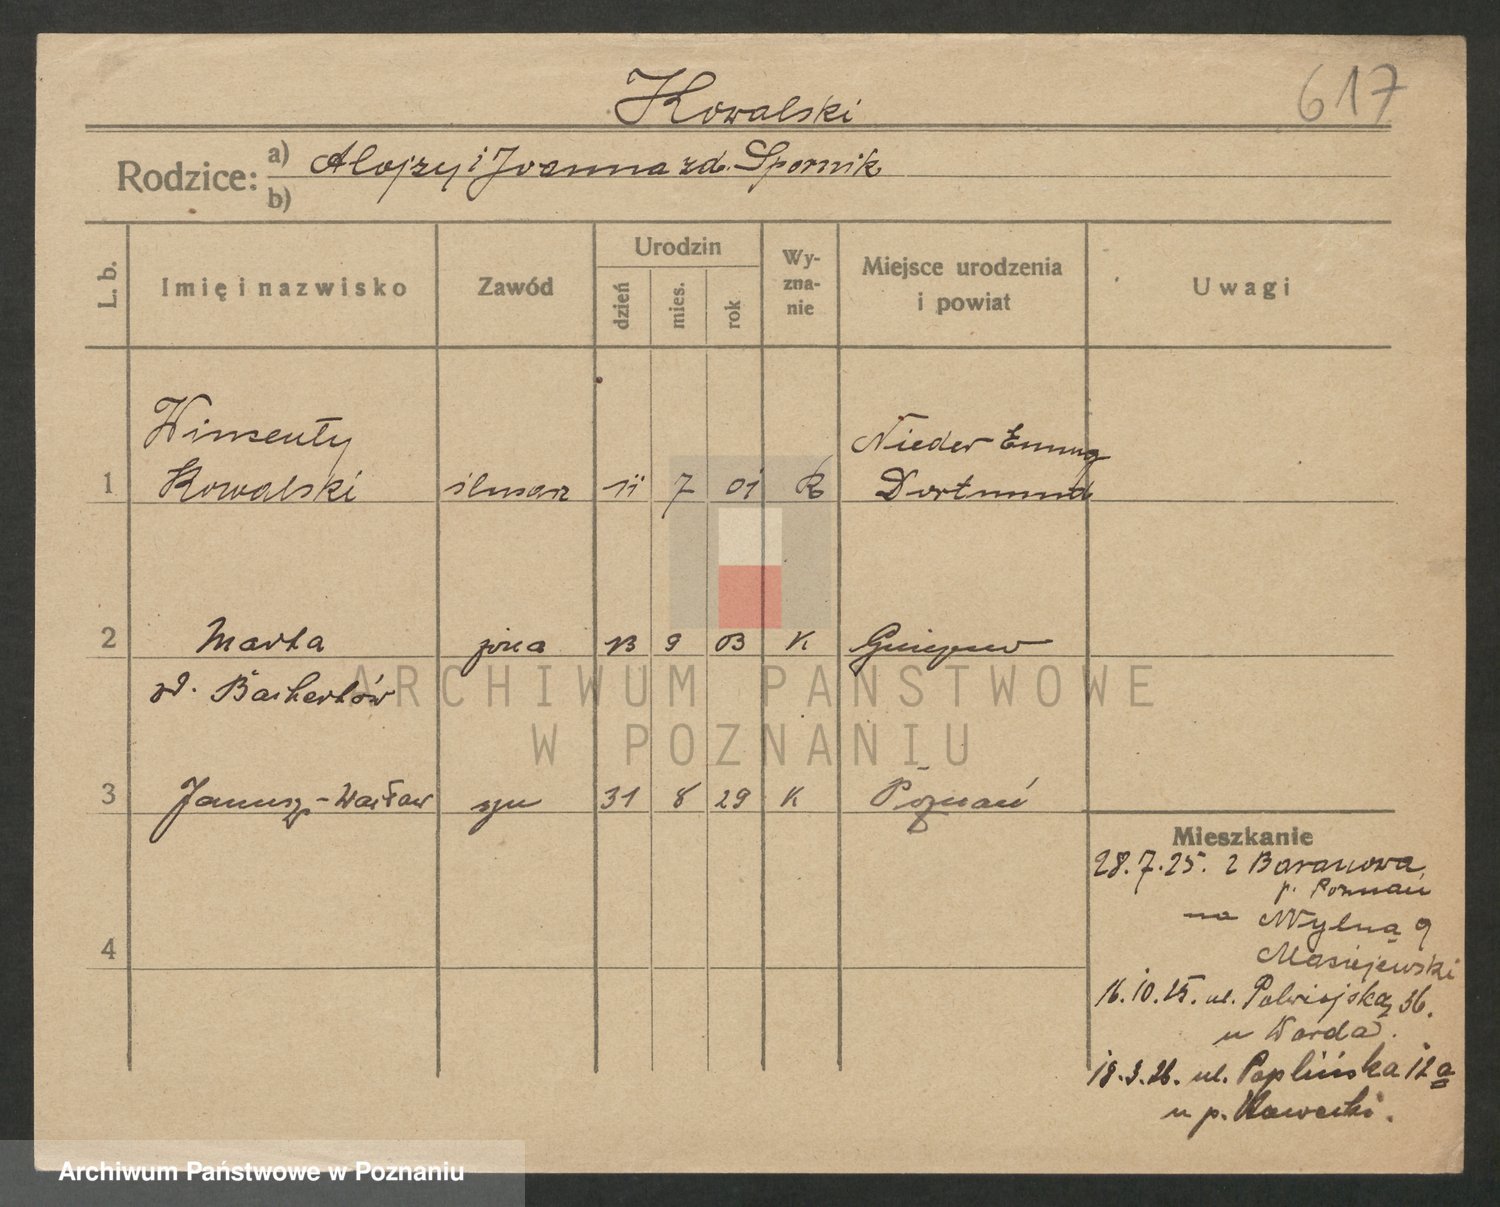 617
Kowalski
Rodzice: a) Alojzy i Joanna zd. Spornik
b)
L. b.
Imię i nazwisko
Zawód
Urodzin
dzień
mies.
rok
Wy-
zna-
nie
Miejsce urodzenia
i powiat
Uwagi
Wincenty
Nieder
1 Kowalski ślusarz 11 7 01 Dortmund
2 Marta żona 13 9 03 K
zd.
3 Janusz-Wacław syn 31 8 29 K Poznań
4
Mieszkanie
28.7.25. z Baranowa
p. Poznań
na Wylną 9
Maciejewski
16.10.25. ul. Polwiejska 36.
u Warda.
18.3.26. ul. Poplińska 12a
u p. Kawecki.
ARCHIWUM PAŃSTWOWE
W POZNANIU
Archiwum Państwowe w Poznaniu